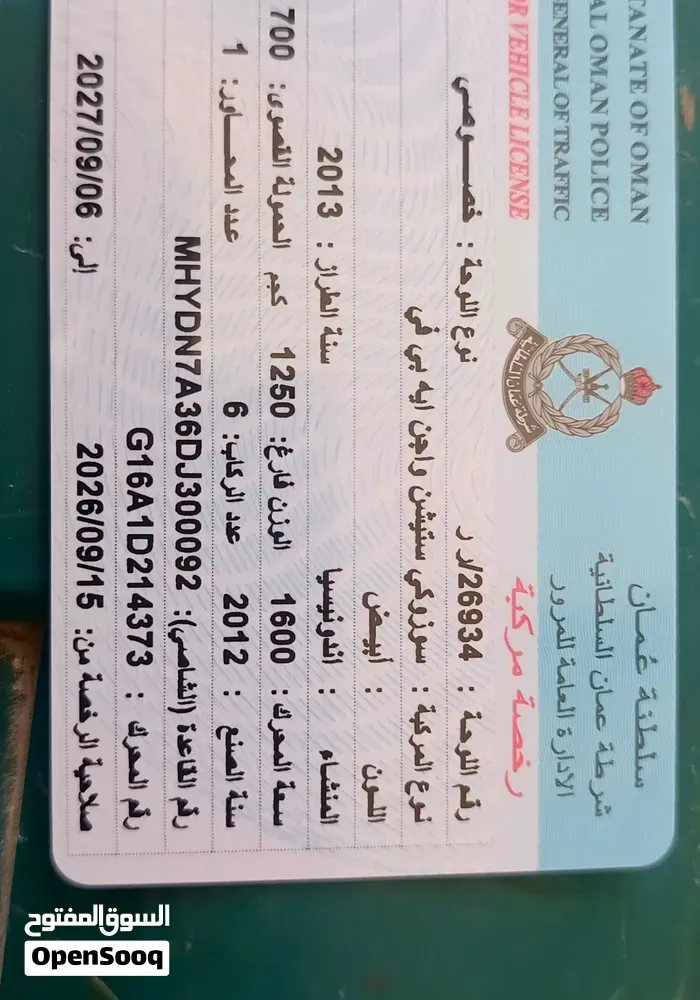 TANATE OF OMAN
AL OMAN POLICE
GENERAL OF TRAFFIC
OR VEHICLE LICENSE
سلطنة عُمان
شرطة عمان السلطانية
الادارة العامة للمرور
رخصة مركبة
شرطة عمان السلطانية
رقم اللوحة : 26934/ر ر نوع اللوحة : خصوصي
نوع المركبة : سوزوكي ستيشن واجن ايه بي في
اللون : أبيض
المنشاء : اندونيسيا سنة الطراز : 2013
سعة المحرك: 1600 الوزن فارغ: 1250 كجم الحمولة القصوى: 700
سنة الصنع : 2012 عدد الركاب: 6 عدد المحاور: 1
رقم القاعدة (الشاصي): MHYDN7A36DJ300092
رقم المحرك : G16A1D214373
صلاحية الرخصة من: 2026/09/15 إلى: 2027/09/06
السوق المفتوح
OpenSooq